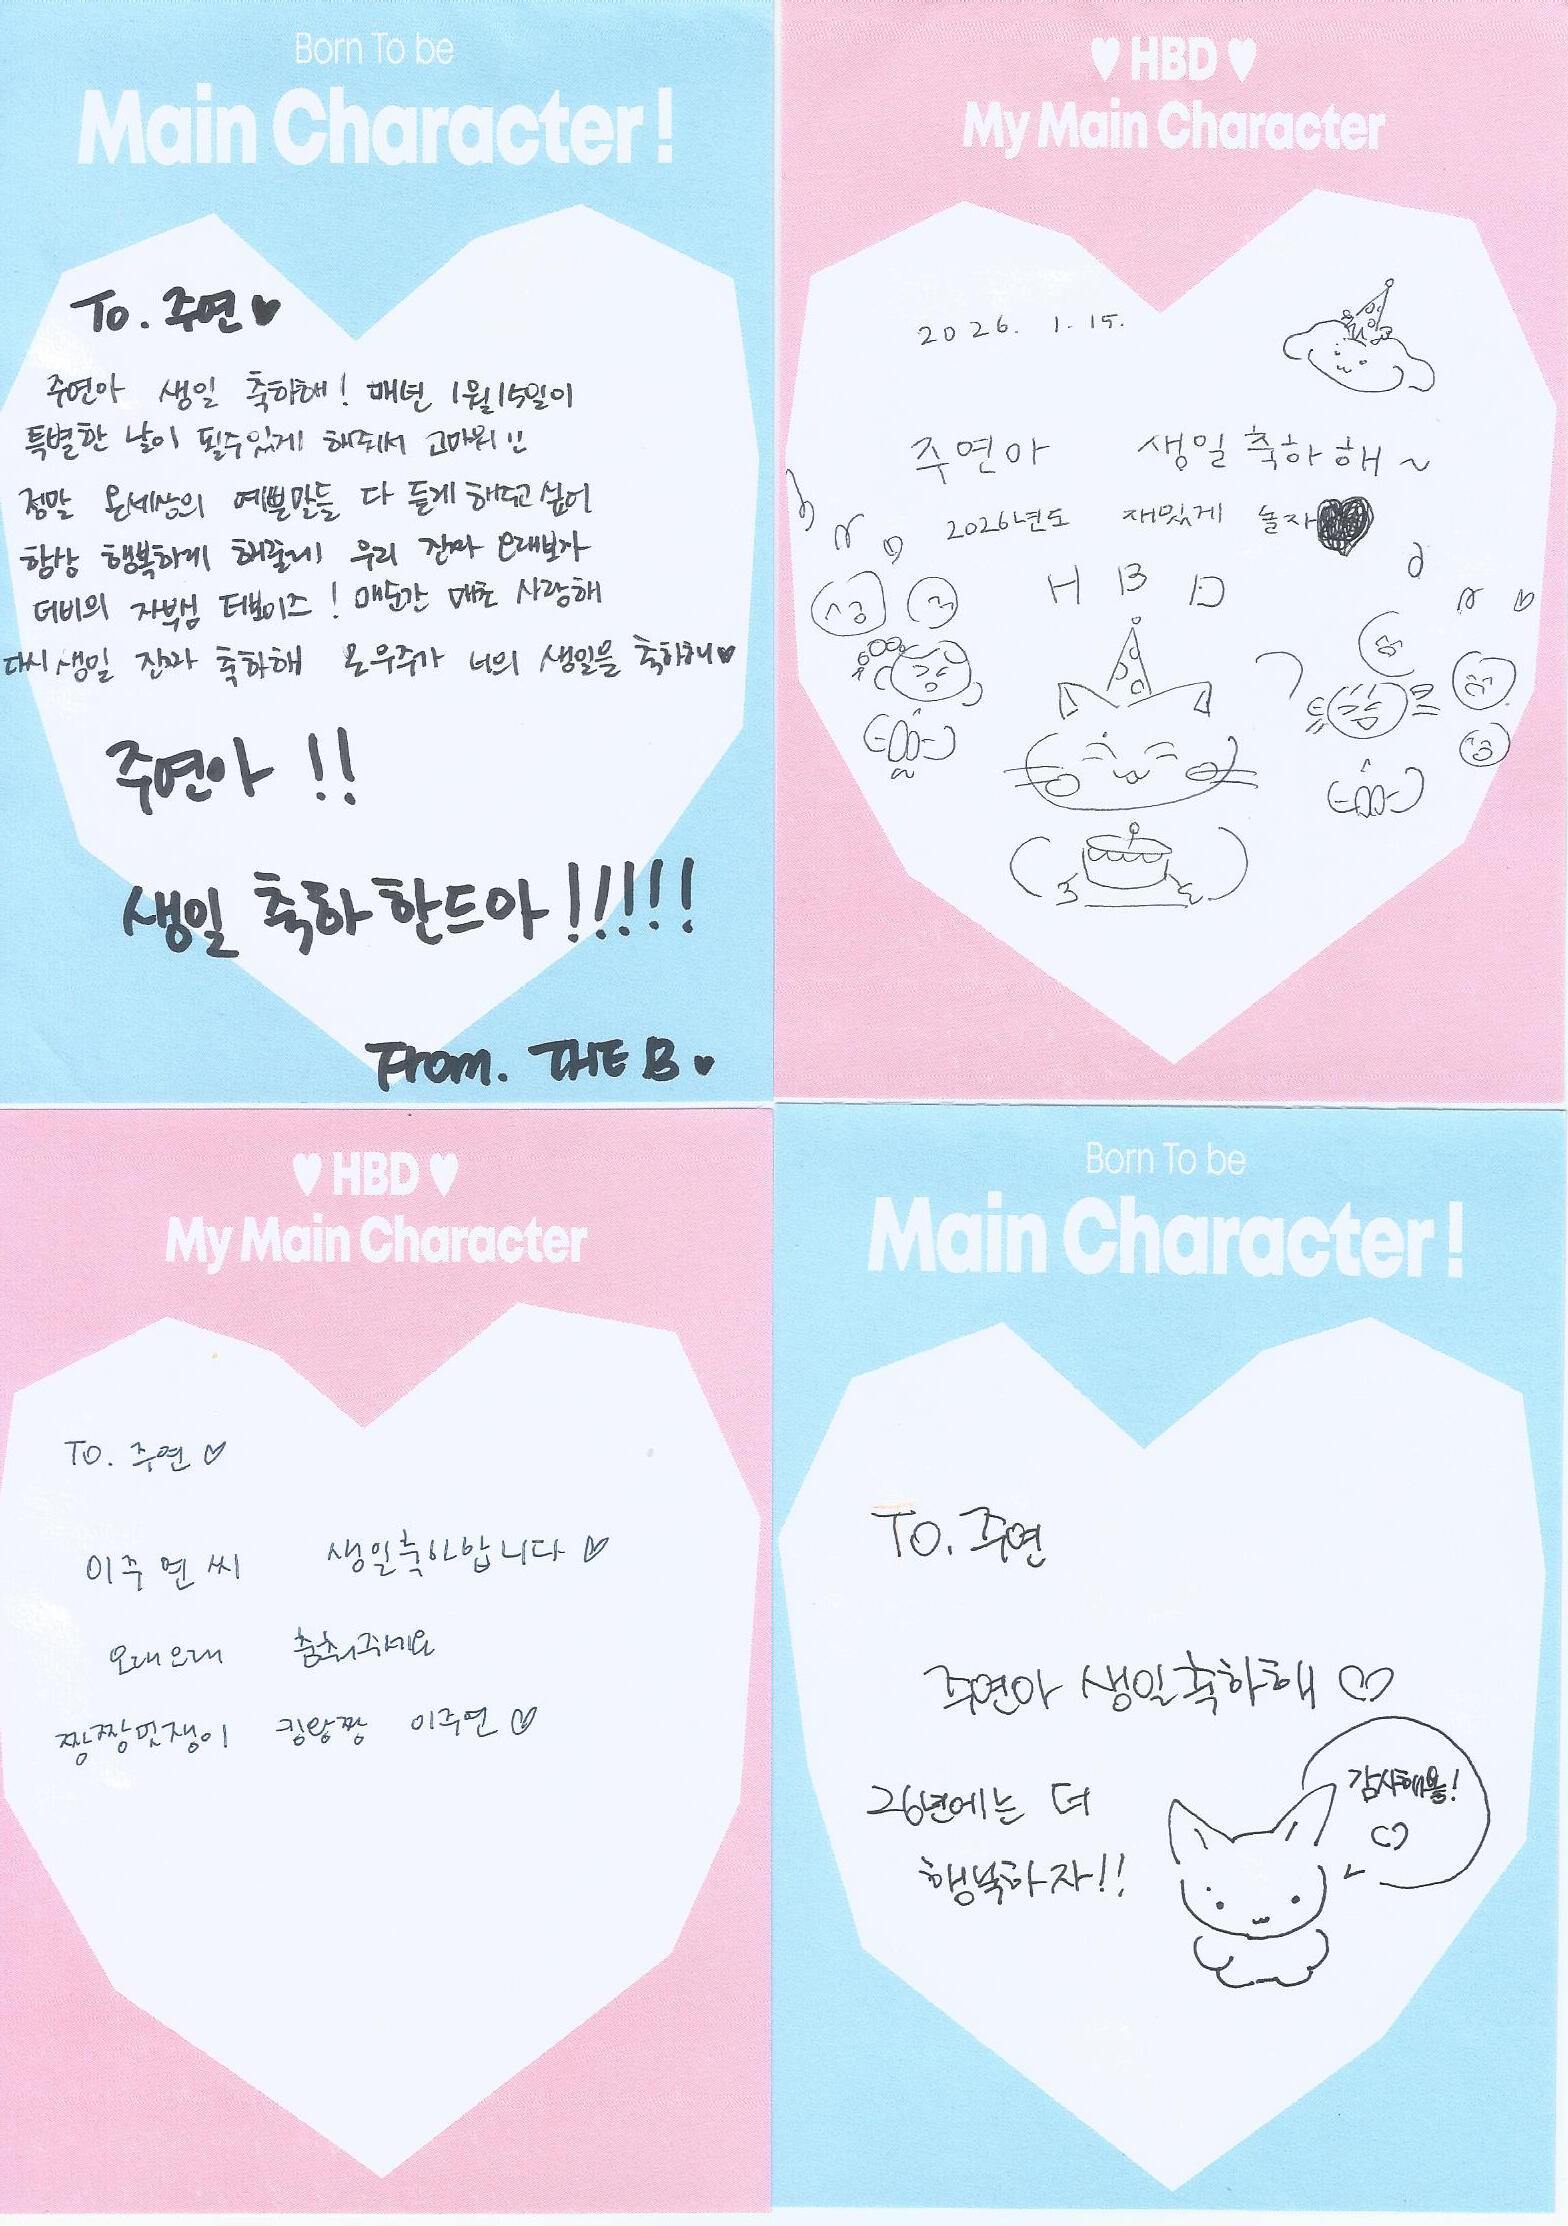 Born To be
Main Character!
To. 주연♥
주연아 생일 축하해! 매년 1월15일이
특별한 날이 될수있게 해줘서 고마워!!
정말 온세상의 예쁜말들 다 듣게 해주고 싶어
항상 행복하게 해줄게 우리 진짜 오래보자
더비의 자부심 더보이즈! 매순간 매초 사랑해
다시 생일 진짜 축하해 온 우주가 너의 생일을 축하해♥
주연아!!
생일 축하 한드아!!!!!
From. THE B♥
♥ HBD ♥
My Main Character
2026. 1. 15.
주연아 생일 축하해~
2026년도 재밌게 놀자♥
HBD
♥ HBD ♥
My Main Character
TO. 주연♡
이주연씨 생일축하합니다♡
오래오래 춤춰주세요
짱짱멋쟁이 킹왕짱 이주연♡
Born To be
Main Character!
TO. 주연
주연아 생일축하해♡
26년에는 더
행복하자!!
감사해용!
♡